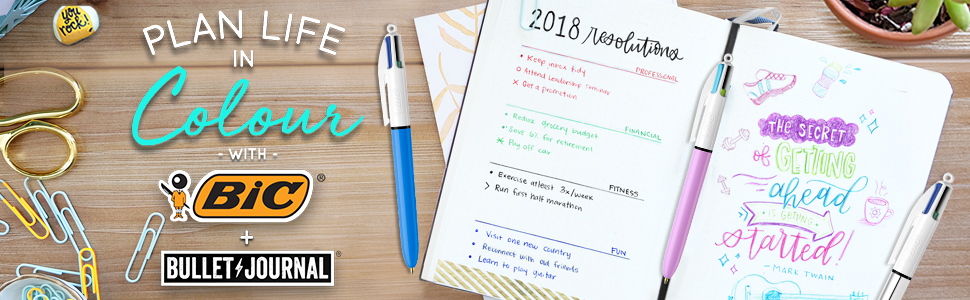 you rock!
PLAN LIFE
IN
Colour
- WITH -
BiC®
+
BULLET JOURNAL®
2018 resolutions
PROFESSIONAL
• Keep inbox tidy
o Attend leadership seminar
x Get a promotion
FINANCIAL
• Reduce grocery budget
• Save 6% for retirement
x Pay off car
FITNESS
• Exercise atleast 3x/week
> Run first half marathon
FUN
• Visit one new country
• Reconnect with old friends
• Learn to play guitar
THE SECRET
of GETTING
ahead
IS GETTING
started!
- MARK TWAIN